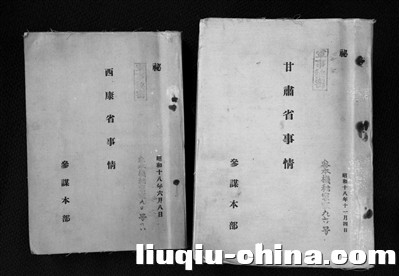 秘
甘肅省事情
參謀本部
昭和十八年十一月四日
秘
西康省事情
參謀本部
昭和十八年六月八日
liuqiu-china.com